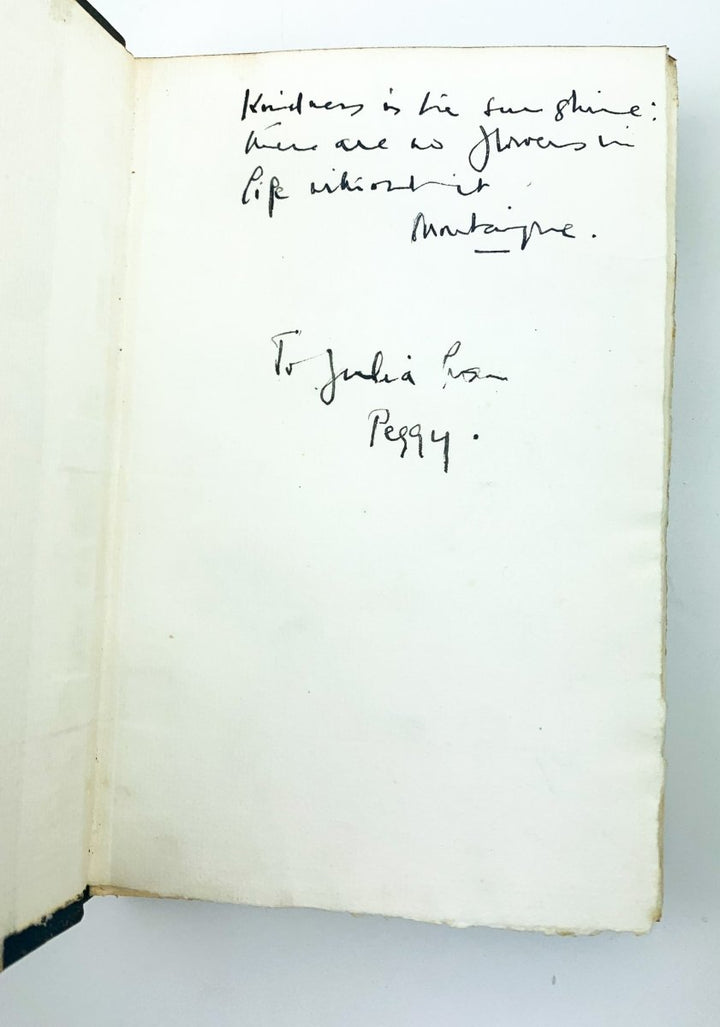 Kindness is the sunshine:
there are no flowers in
life without it
Montaigne.
To Julia from
Peggy.